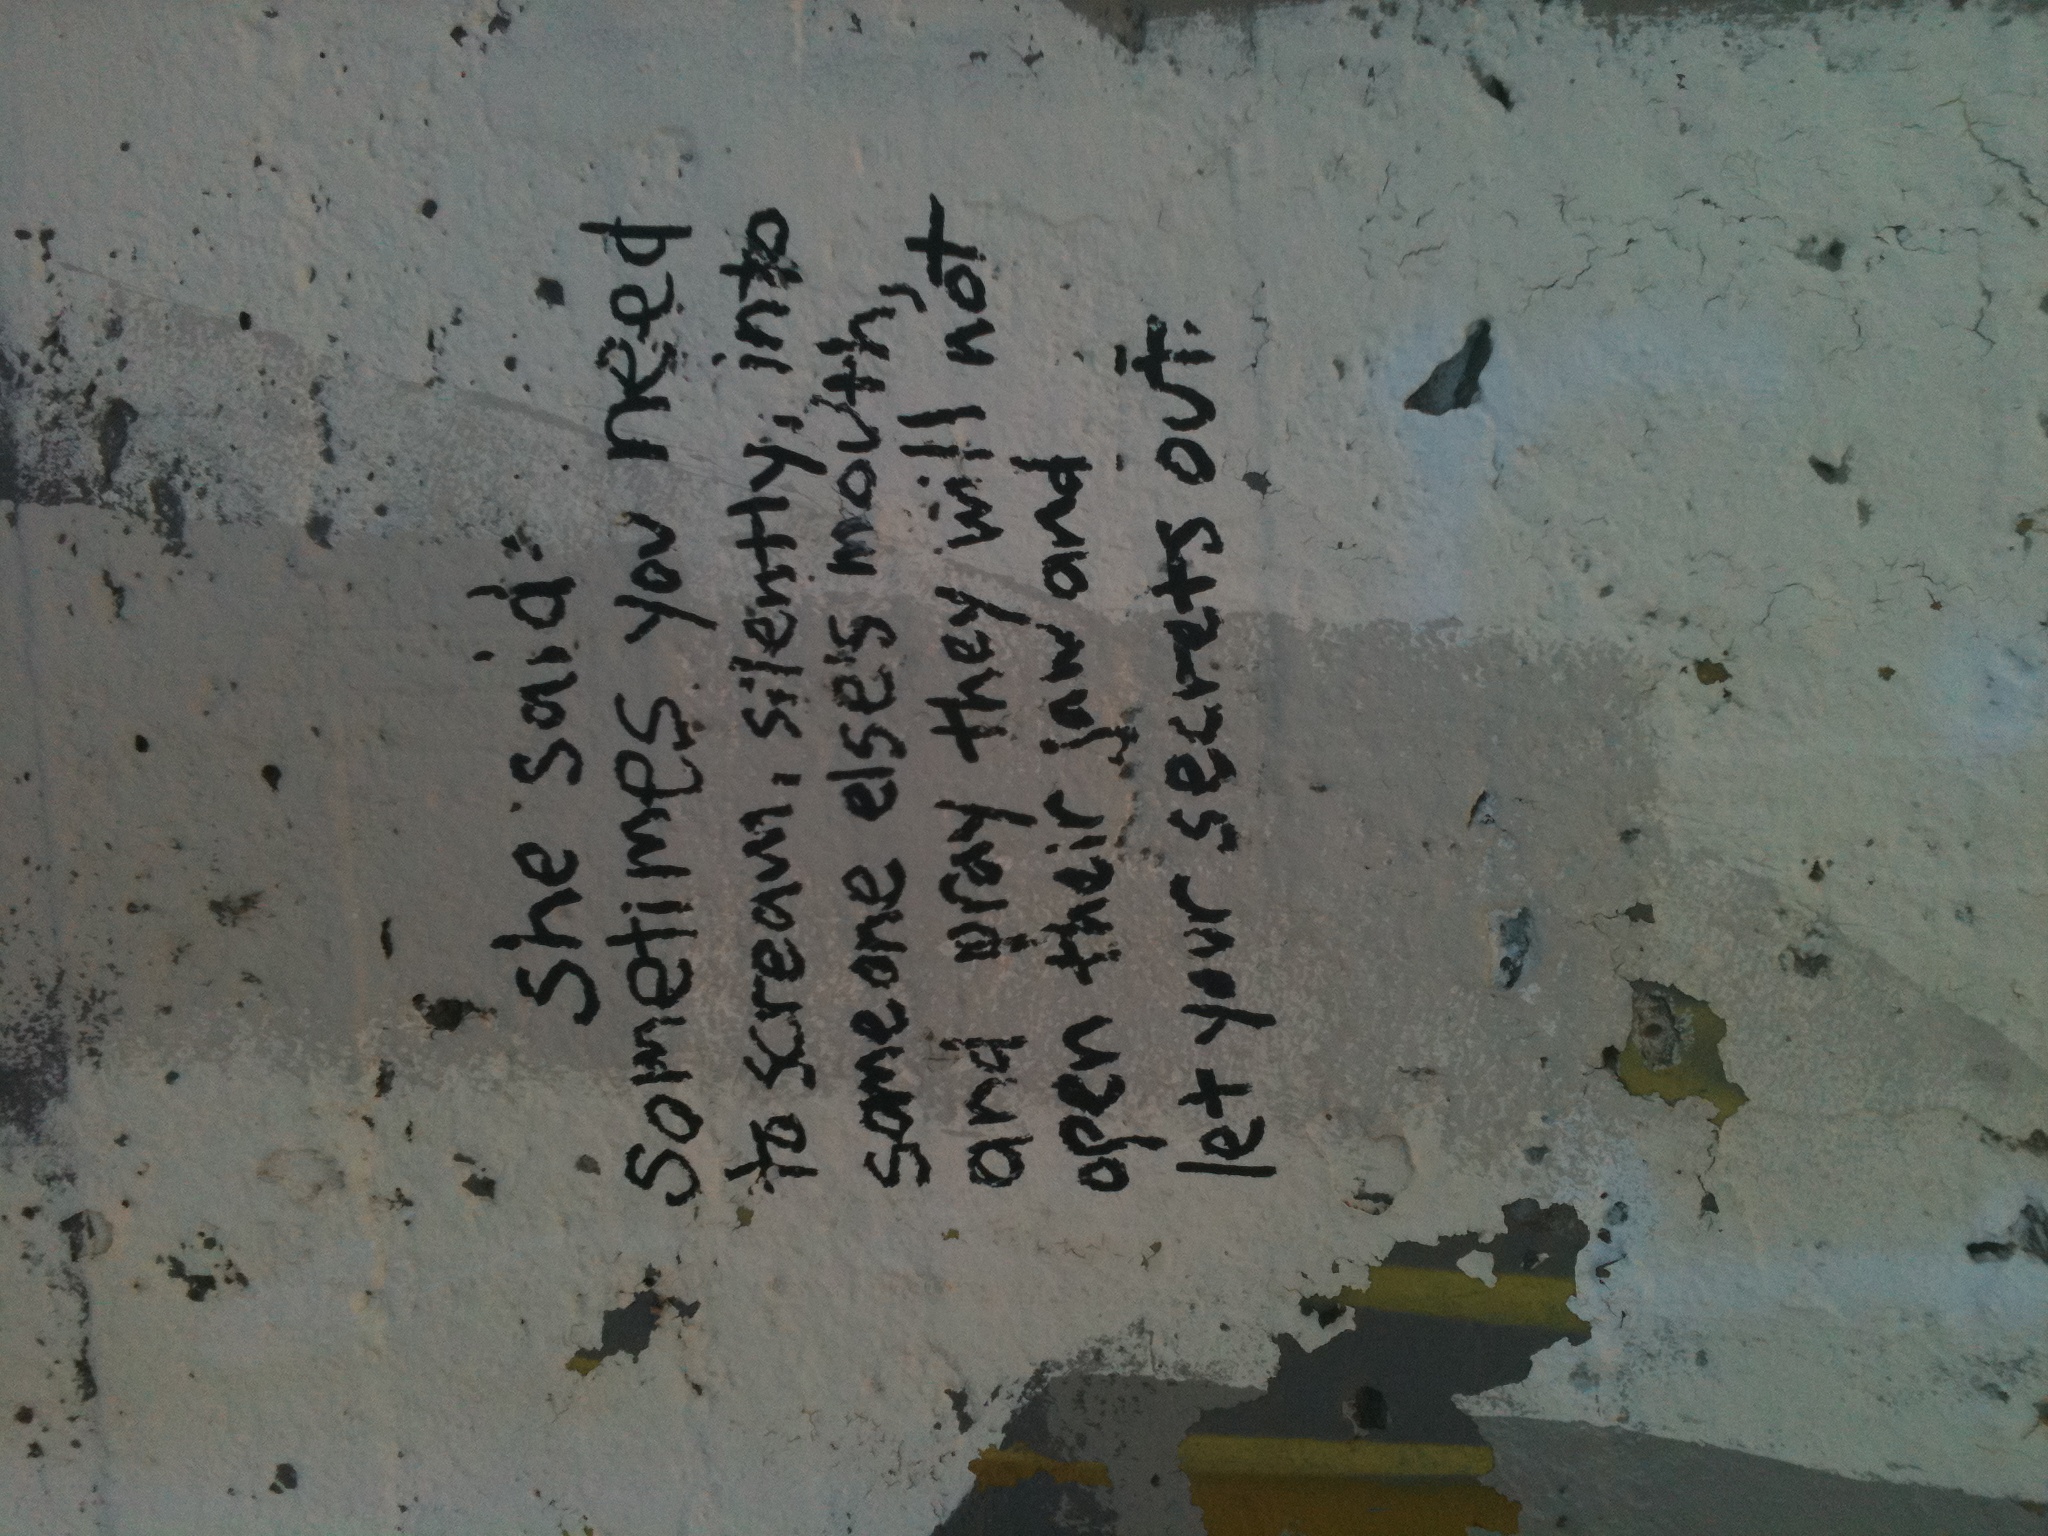 she said
sometimes you need
to scream, silently, into
someone else's mouth,
and pray they will not
open their jaw and
let your secrets out.